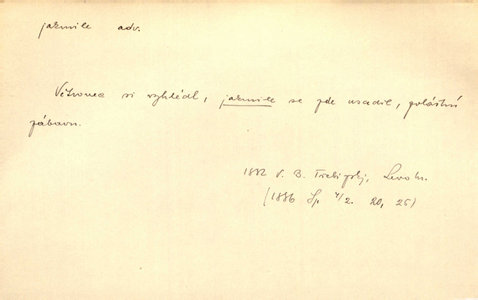 jakmile adv.
Větronec si vyhlédl, jakmile se zde usadil, zvláštní
zábavu.
1882 V. B. Třebízský, Levoh.
(1886 Sp. 4/2. 20, 25)